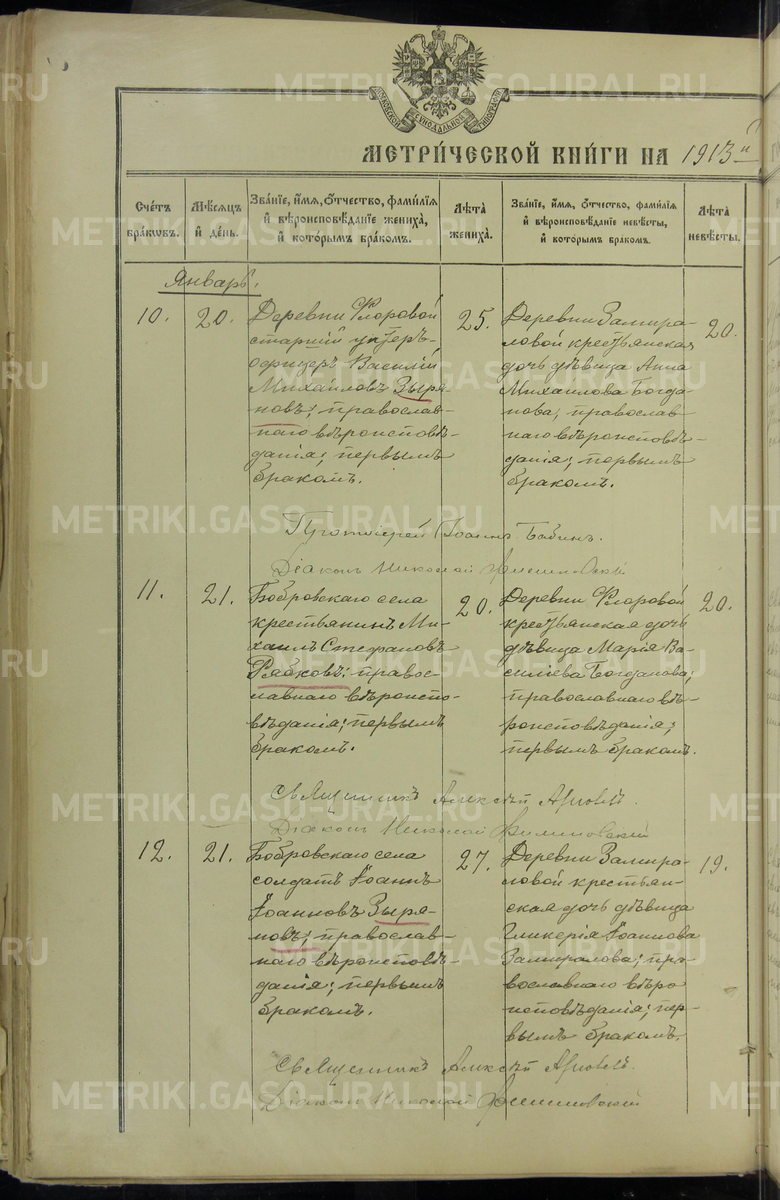 МОСКОВСКОЙ СѴНОДАЛЬНОЙ ТИПОГРАФІИ
МЕТРИ́ЧЕСКОЙ КНИ́ГИ НА 1913
Сче́тъ бра́кѡвъ.
Мѣ́сяцъ и҆ де́нь.
Зва́нїе, и҆́мя, ѻ҆́тчество, фами́лїя
и҆ вѣроисповѣ́данїе жениха̀,
и҆ кото́рымъ бра́комъ.
Лѣ́та жениха̀.
Зва́нїе, и҆́мя, ѻ҆́тчество, фами́лїя
и҆ вѣроисповѣ́данїе невѣ́сты,
и҆ кото́рымъ бра́комъ.
Лѣ́та невѣ́сты.
Январь.
10.
20.
Деревни Флоровой
старшій унтеръ-
офицеръ Василій
Михайловъ Зыря-
новъ; православ-
наго вѣроисповѣ-
данія; первымъ
бракомъ.
25.
Деревни Замира-
ловой крестьянская
дочь дѣвица Анна
Михайлова Богда-
нова; православ-
наго вѣроисповѣ-
данія; первымъ
бракомъ.
20.
Протоіерей Іоаннъ Бабинъ.
Діаконъ Николай Филипповскій
11.
21.
Бобровскаго села
крестьянинъ Ми-
хаилъ Стефановъ
Рябковъ; правос-
лавнаго вѣроиспо-
вѣданія; первымъ
бракомъ.
20.
Деревни Флоровой
крестьянская дочь
дѣвица Марія Ва-
силіева Богданова;
православнаго вѣ-
роисповѣданія;
первымъ бракомъ.
20.
Священникъ Алексѣй
Діаконъ Николай Филипповскій
12.
21.
Бобровскаго села
солдатъ Іоаннъ
Іоанновъ Зыря-
новъ; православ-
наго вѣроисповѣ-
данія; первымъ
бракомъ.
27.
Деревни Замира-
ловой крестьян-
ская дочь дѣвица
Гликерія Іоаннова
Замиралова; пра-
вославнаго вѣро
исповѣданія; пер-
вымъ бракомъ.
19.
Священникъ Алексѣй
Діаконъ Николай Филипповскій
METRIKI.GASO-URAL.RU